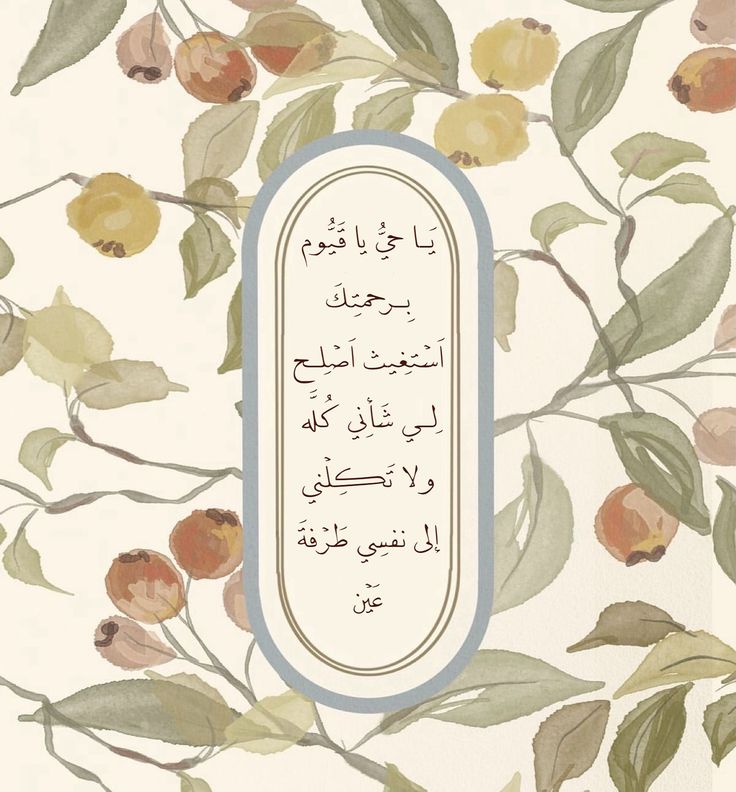 يَـا حيُّ يا قَيُّوم
بِـرحمتِكَ
اَسْتغِيث اَصْلِـح
لِـي شَأنِي كُلَّه
ولا تَكِلْني
إلى نفسِي طَرْفةَ
عَيْن